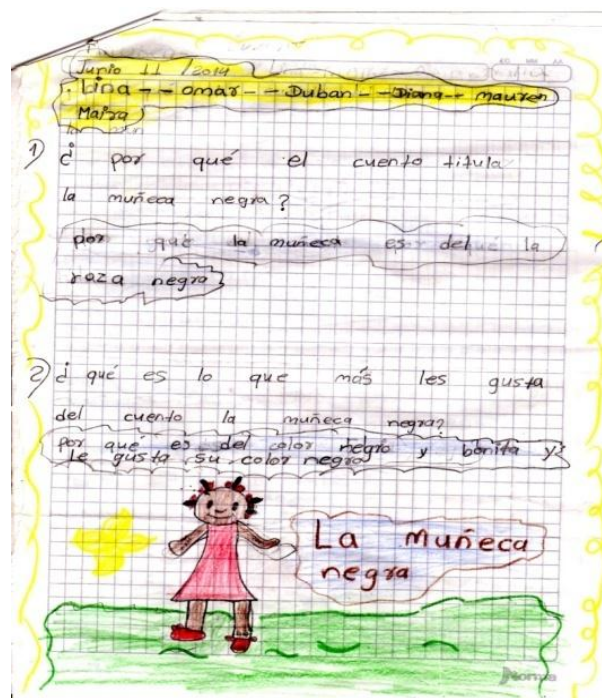 Junio 11 / 2014
Lina -- omar -- Duban -- Diana -- mauren
Maira
1) ¿ por qué el cuento titula
la muñeca negra?
por qué la muñeca es de la
raza negra
2) ¿ qué es lo que más les gusta
del cuento la muñeca negra?
por qué es del color negro y bonita y
Le gusta su color negro
La muñeca
negra
Norma